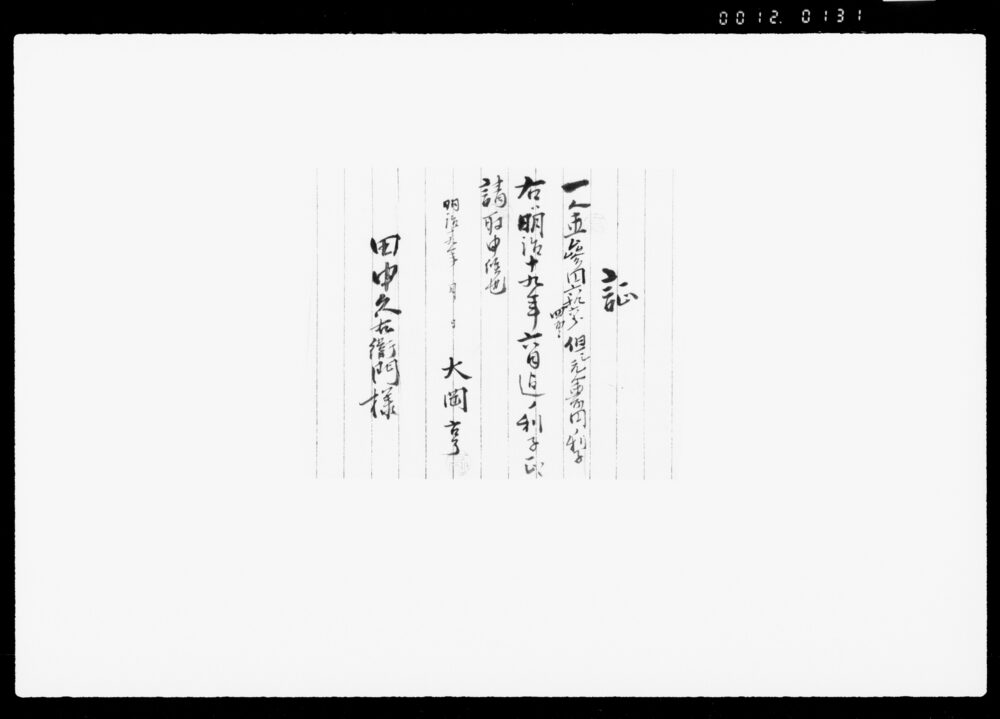 0012. 0131
証
一金参円六拾銭 但シ元金円ノ利子
右ハ明治十九年六月迠ノ利子正
請取申候也
明治十九年 月 日
大岡亨
田中久右衛門様